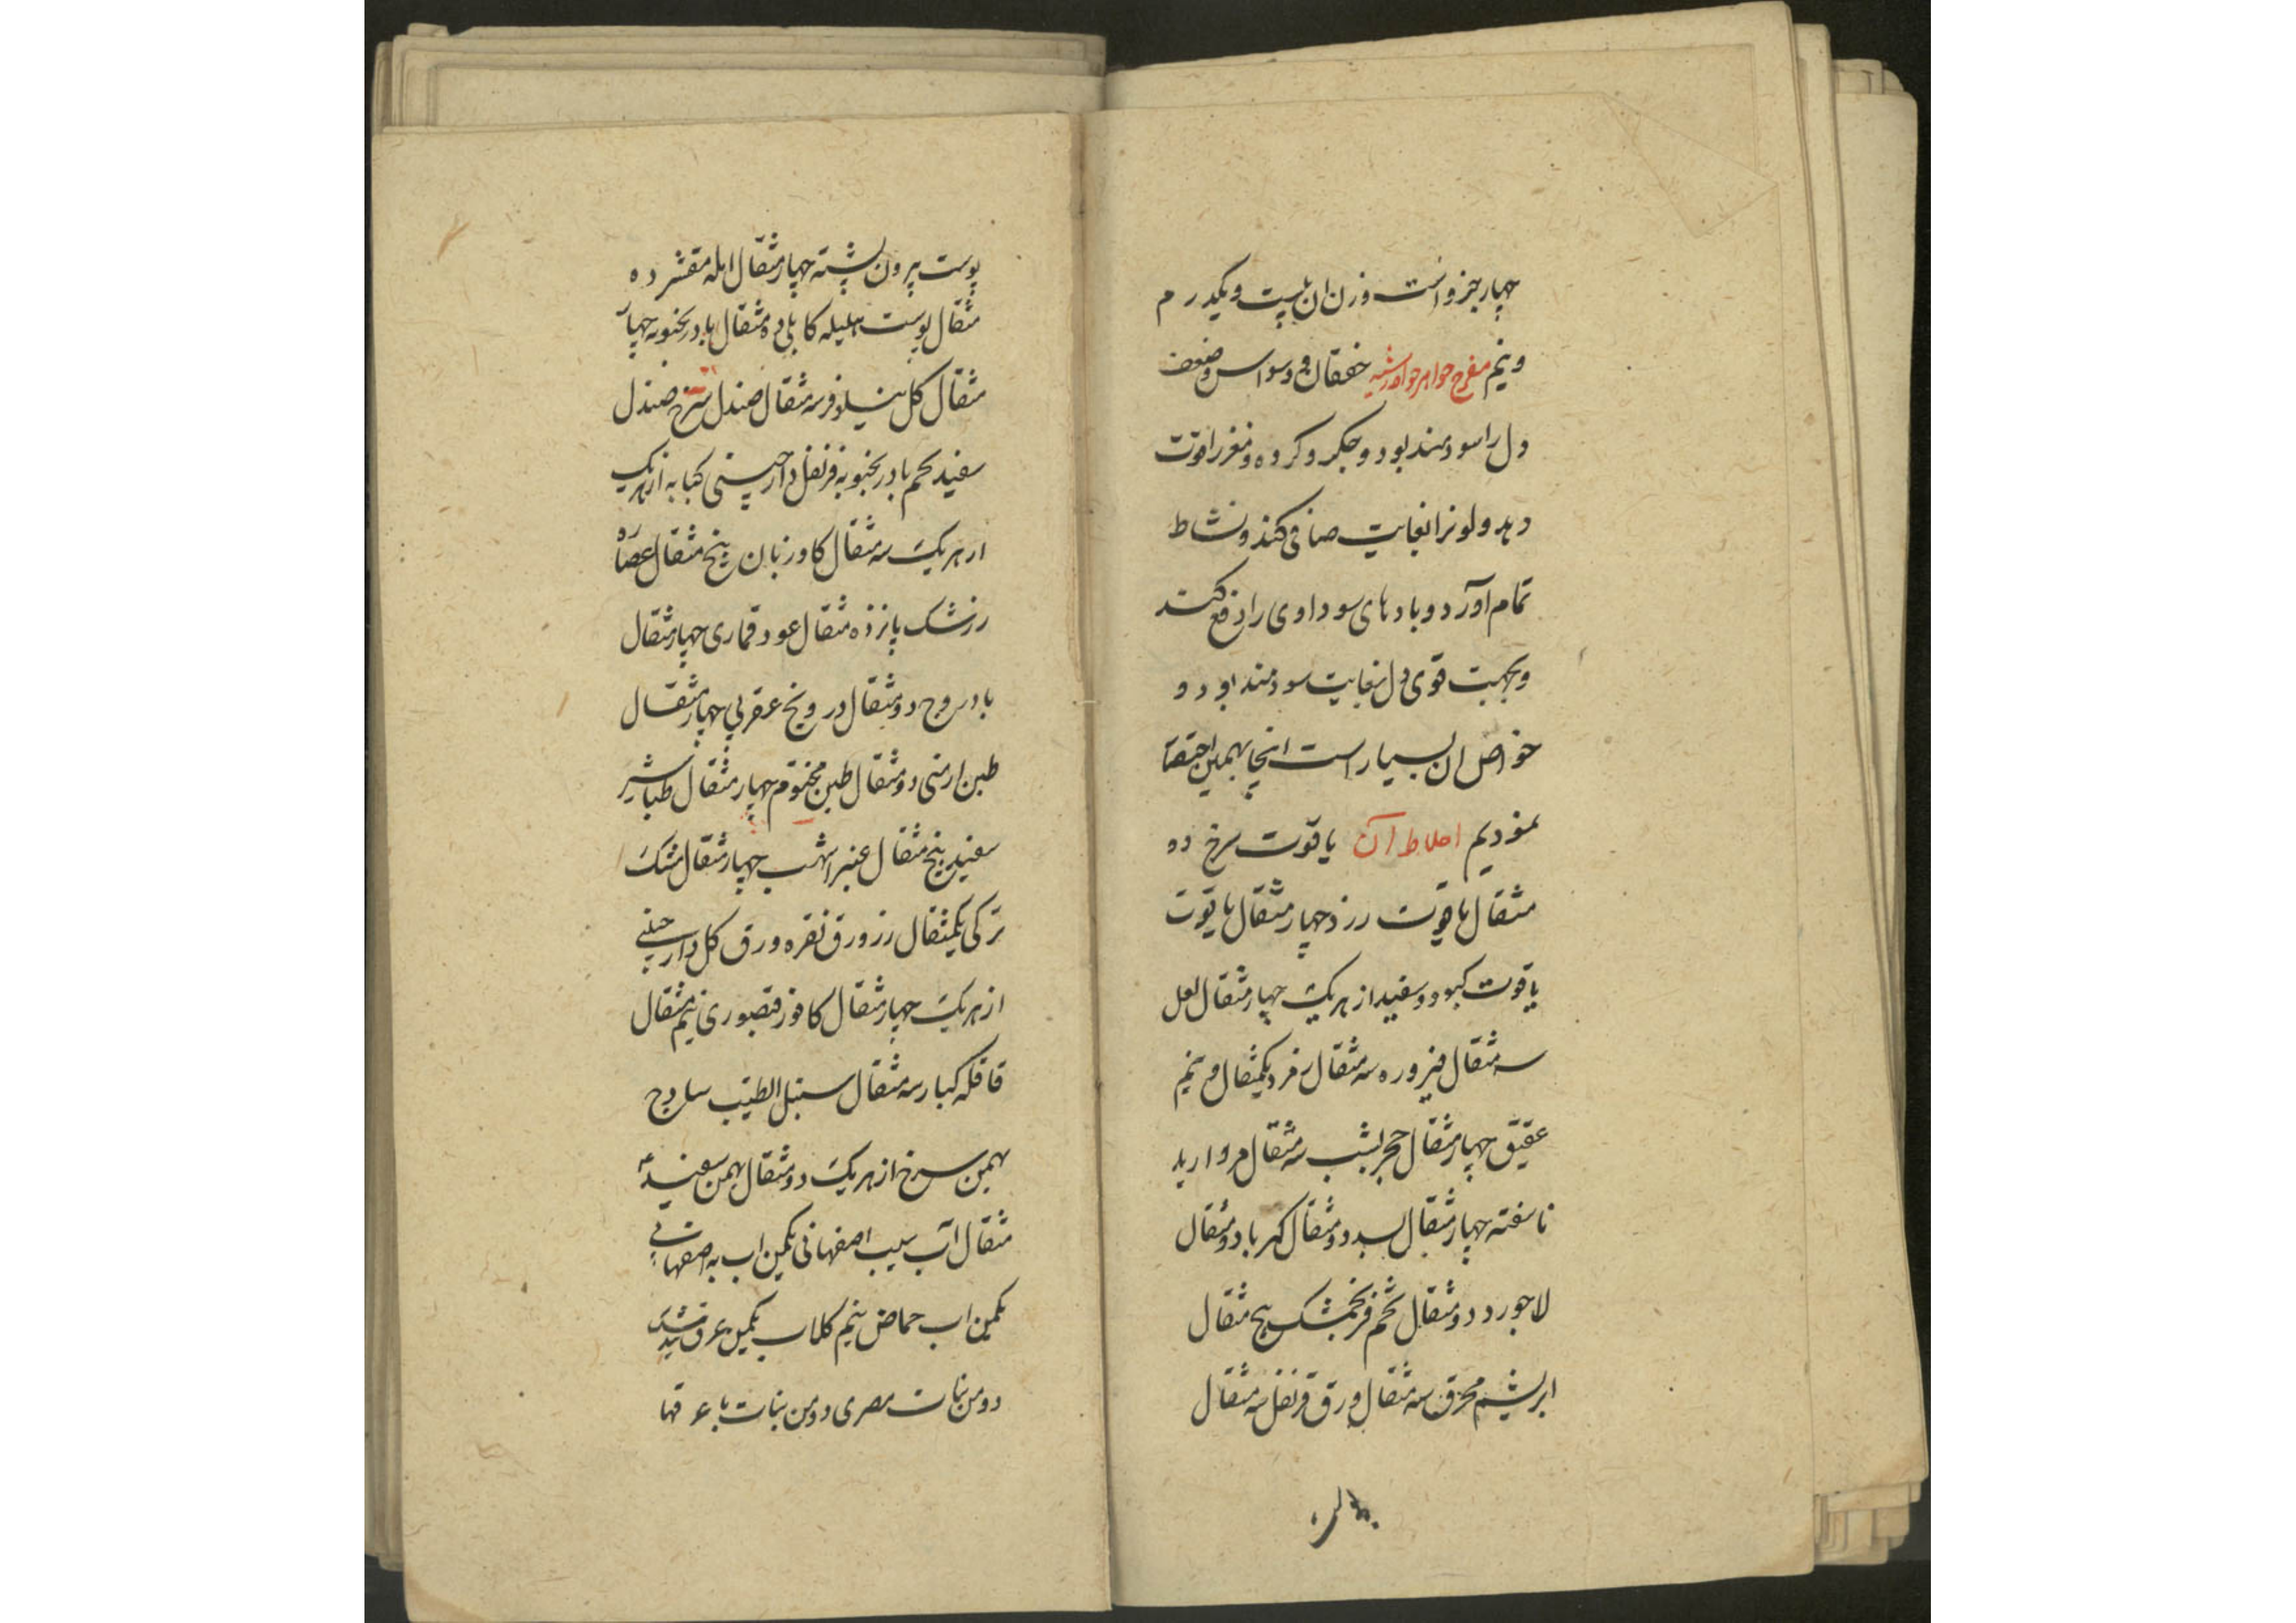 چهار جزو است وزن ان بیست و یکدرم
و نیم مفرح جواهر خفقان و وسواس و ضعف
دل را سودمند بود و جکر و کرده و مغز را قوت
دهد و لونرا بغایت صافی کند و نشاط
تمام آورد و بادهای سوداوی را دفع کند
و بجهت قوی دل بغایت سودمند بود و
خواص ان بسیار است اینجا بهمین اختصا
نمودیم اخلاط آن یاقوت سرخ ده
مثقال یاقوت زرد چهار مثقال یاقوت
یاقوت کبود و سفید از هریک چهار مثقال لعل
سه مثقال فیروزه سه مثقال زمرد یکمثقال و نیم
عقیق چهار مثقال حجر یشب سه مثقال مروارید
ناسفته چهار مثقال بسد دو مثقال کهربا دو مثقال
لاجورد دو مثقال تخم فرنجمشک پنج مثقال
ابریشم محرق سه مثقال ورق قرنفل سه مثقال
پوست پرون پسته چهار مثقال امله مقشر ده
مثقال پوست هلیله کابلی ده مثقال بادرنجنویه چهار
مثقال کل نیلوفر سه مثقال صندل سرخ صندل
سفید تخم بادرنجنویه قرنفل دارچینی کبابه از هریک
از هریک سه مثقال کاوزبان پنج مثقال عصاره
زرشک پانزده مثقال عود قماری چهار مثقال
بادروج دو مثقال درونج عقربی چهار مثقال
طین ارمنی دو مثقال طین مختوم چهار مثقال طباشیر
سفید پنج مثقال عنبر اشهب چهار مثقال مشک
ترکی یکمثقال زر ورق نقره ورق کل دارچینی
از هریک چهار مثقال کافور قیصوری نیم مثقال
قاقله کبار سه مثقال سنبل الطیب ساذج
بهمن سرخ از هریک دو مثقال بهمن سفید
مثقال آب سیب اصفهانی یکمن اب به اصفهانی
یکمن اب حماض نیم کلاب یکمن عرق بید
دو من نبات مصری دو من نبات با عرقها